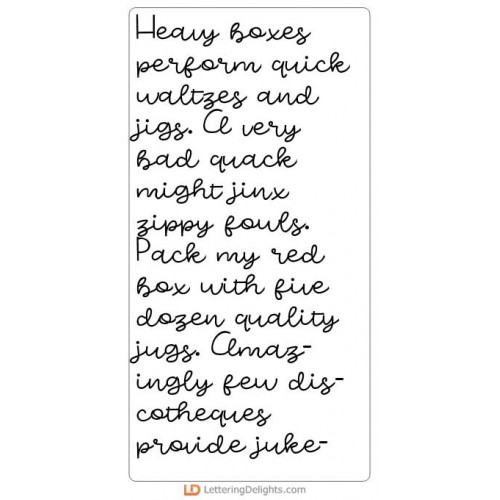 Heavy boxes
perform quick
waltzes and
jigs. A very
bad quack
might jinx
zippy fowls.
Pack my red
box with five
dozen quality
jugs. Amaz-
ingly few dis-
cotheques
provide juke-
LD LetteringDelights.com